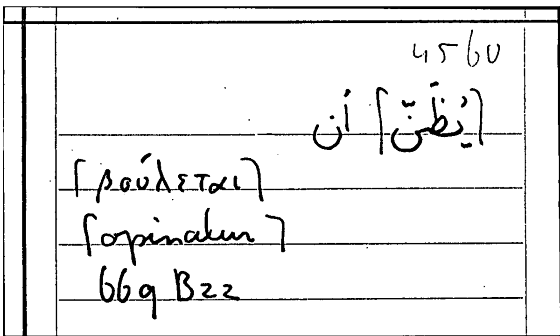 4560
⌈يُظَنّ⌉ أن
⌈βούλεται⌉
⌈opinatur⌉
669 B22